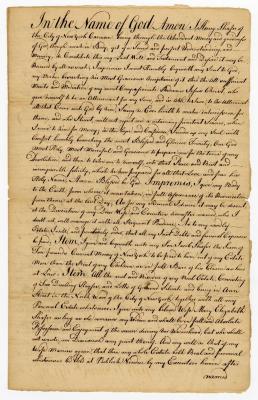 In the Name of God, Amen I Henry Sharpe of
the City of New York Carman being through the Abundant Mercy and Goodness
of God, though weak in Body, yet of a Sound and perfect Understanding, and
Memory, do Constitute this my last Will and Testament and desire it may be
Received by All as such, Imprimis I most Humbly bequeath my Soul to God
my Maker beseeching his Most Gracious Acceptance of it thro the All sufficient
Merits and Mediation of my most Compassionate Redeemer Jesus Christ who
gave himself to be an Attonement for my Sins, and is able to Save to the uttermost
all that Come unto God by him Seeing he Ever liveth to make intercession for
them, and who I trust will not reject me a returning penitent Sinner, when
I come to him for Mercy, in this Hope and Confidence I render up my Soul with
Comfort humbly beseeching the most Blessed and Glorious Trinity, One God
most Holy, most Merciful and Gracious to prepare me for the time of my
Dissolution, and then to take me to himself, into that Peace and Rest and
incomparable felicity, which he has prepared for all that Love and fear his
Holy Name, Amen, Blessed be God. Imprimis, I give my Body
to the Earth from whence it was taken, in full Assurance of its Resurrection
from thence at the last Day; As for my Burial I desire it may be decent
at the Discretion of my Dear Wife and Executors hereafter named, who I
doubt not, will manage it with all requisite Prudence. As to my worldly
Estate I will, and positively order, that all my Just Debts and funeral Expences
be paid, Item, I give and bequeath unto my Son Jacob Sharpe the Sum of
Ten pounds Current Money of New York, to be paid to him, out of my Estate
at Law. Item All the rest and Residue of my Real Estate, Consisting
Street in the North Ward of the City of New York, together with all my
Personal Estate whatsoever, I give unto my Loving Wife Mary Elizabeth
Sharpe as long as she remains my Widow and shall be in full and Absolute
Possession and Enjoyment of the same during her Widowhood, but she shall
not waste, or incumber any part thereof. And my will is, that if my
Wife Marries again, that then my whole Estate both Real and personal
whatsoever be Sold at Publick Vendue by my Executors herein after
named